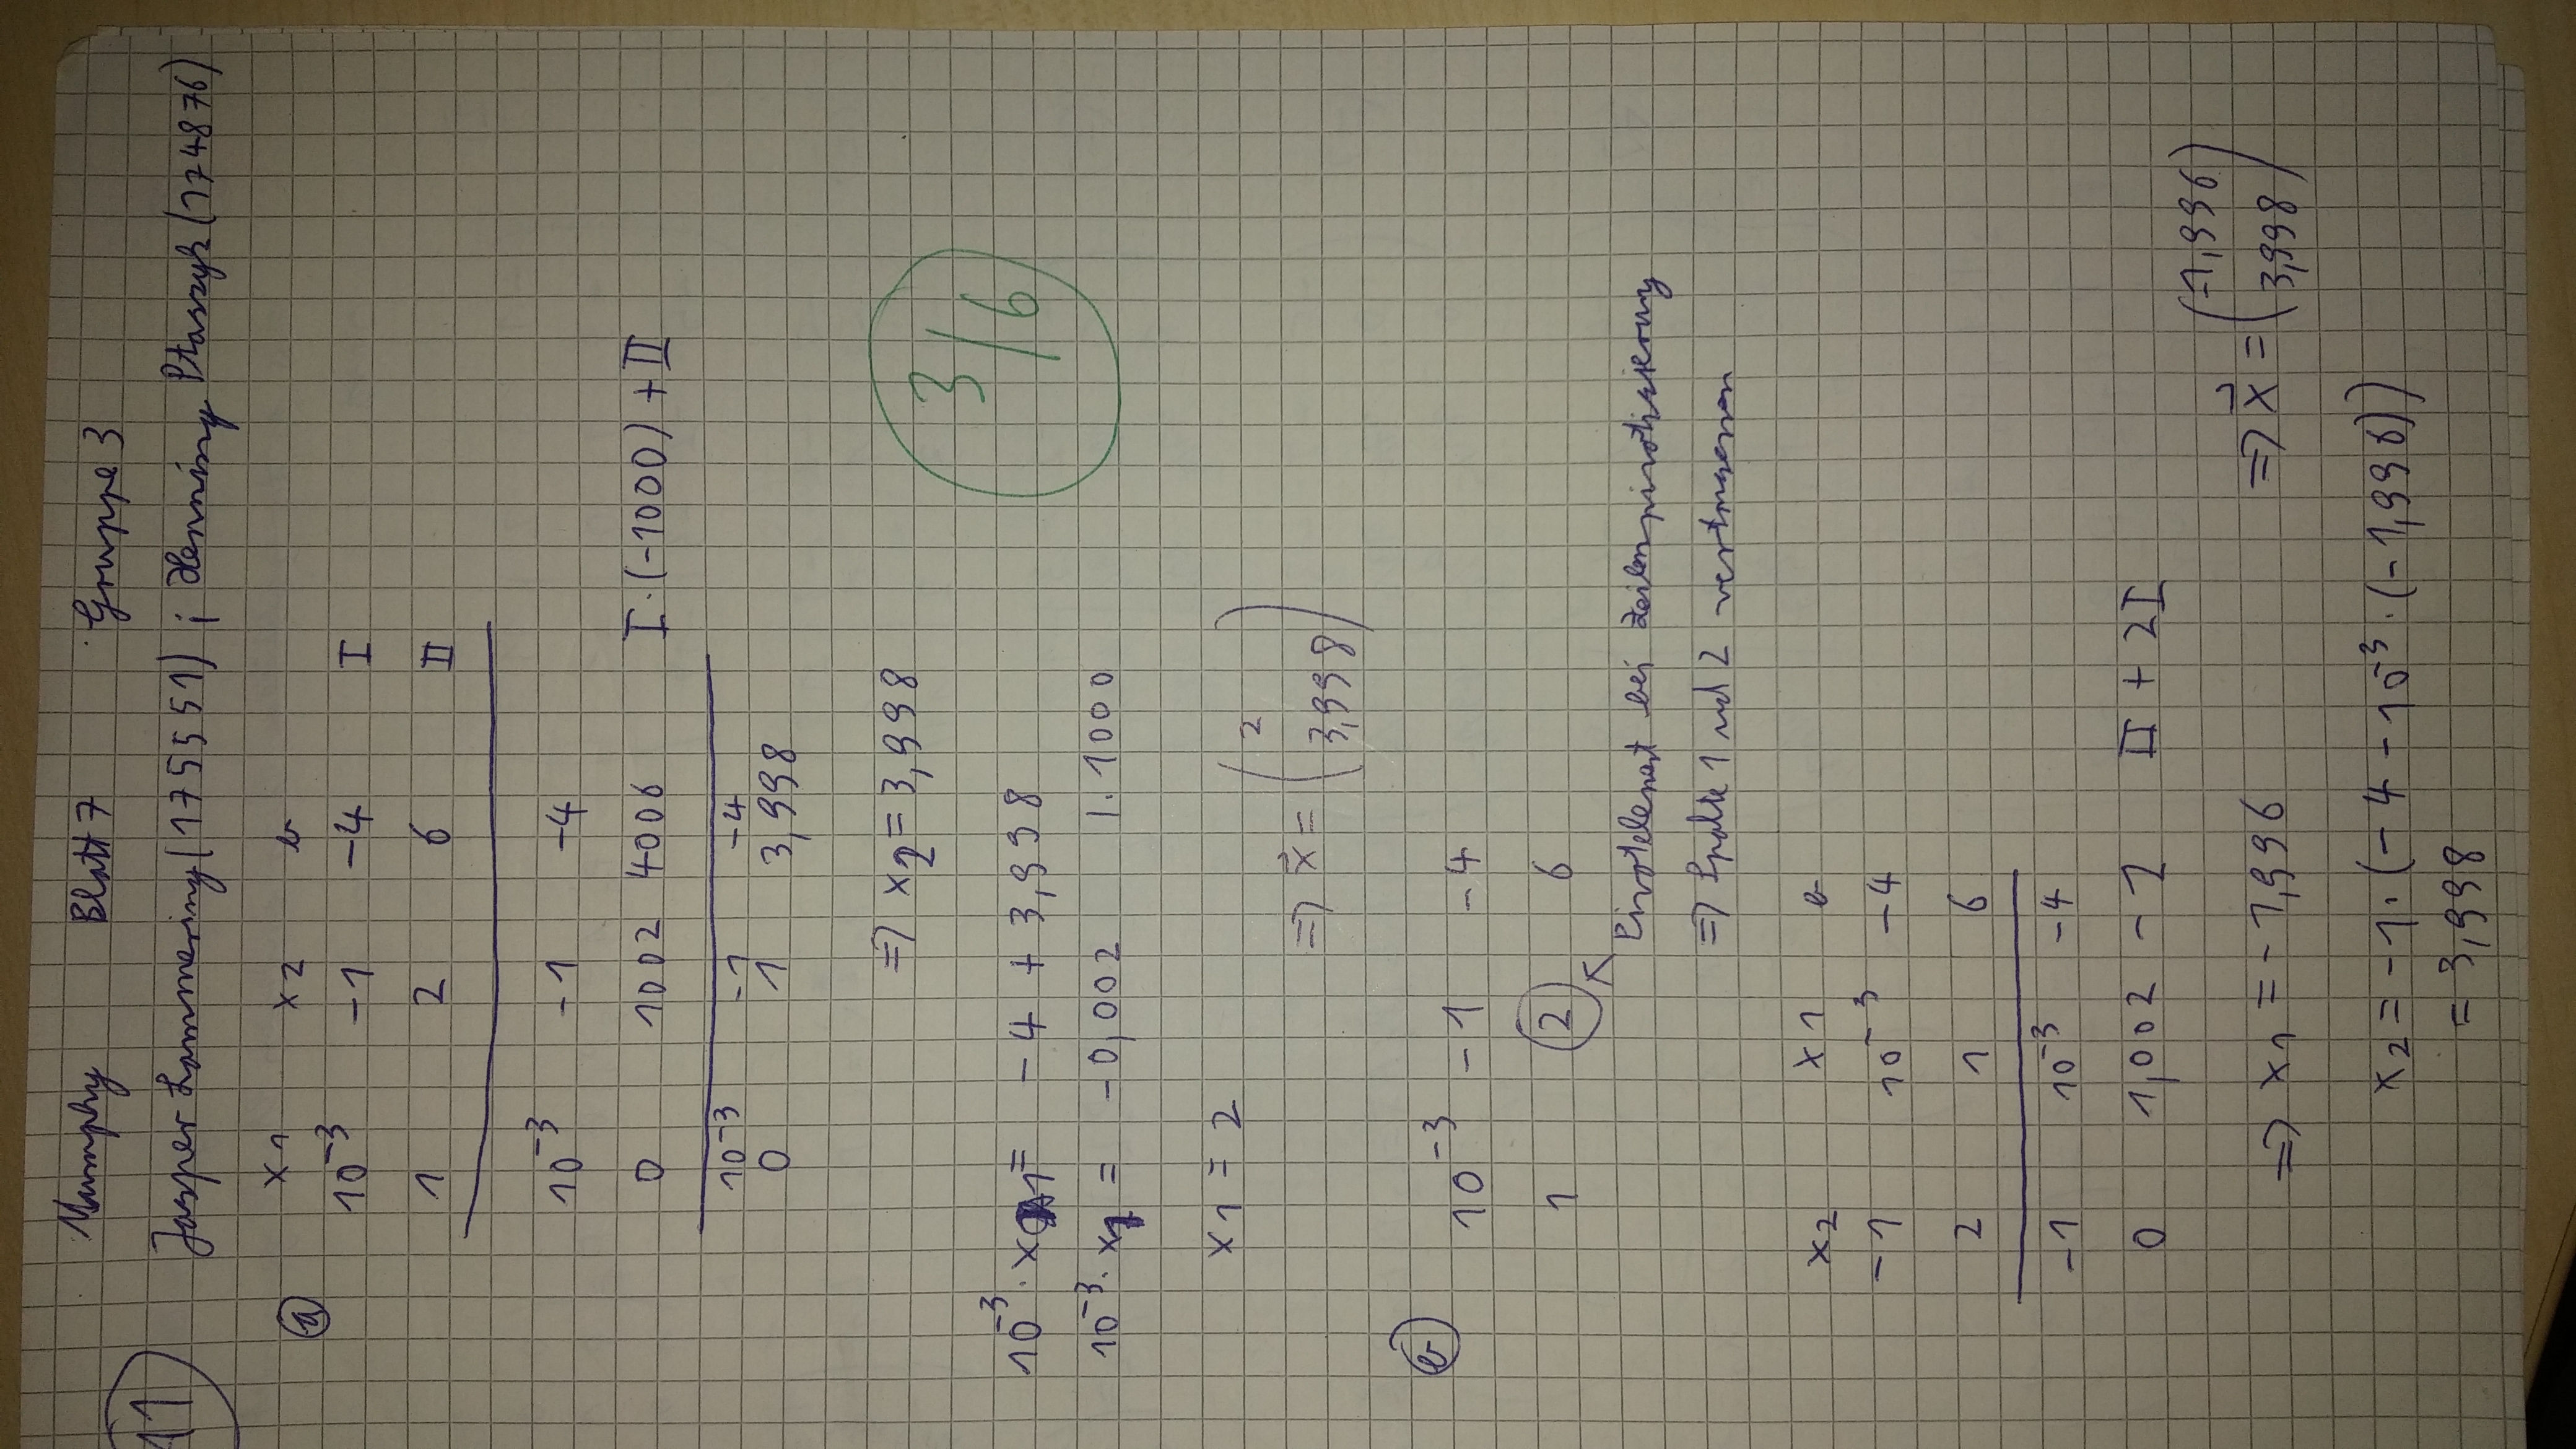 Numphy Blatt 7 Gruppe 3
11
Jasper Lammering (175551) ; Henning Ptaszyk (174876)
a
x1 x2 b
10^-3 -1 -4 I
1 2 6 II
10^-3 -1 -4
0 1002 4006 I·(-1000) + II
10^-3 -1 -4
0 1 3,998
=> x2 = 3,998
3/6
10^-3 · x1 = -4 + 3,998
10^-3 · x1 = -0,002 |·1000
x1 = 2
=> x⃗ = (2
3,998)
b
10^-3 -1 -4
1 2 6
Pivotelement bei Zeilenpivotisierung
=> Spalte 1 und 2 vertauschen
x2 x1 b
-1 10^-3 -4
2 1 6
-1 10^-3 -4
0 1,002 -2 II + 2I
=> x1 = -1,996 => x⃗ = (-1,996
3,998)
x2 = -1·(-4 - 10^-3·(-1,996))
= 3,998